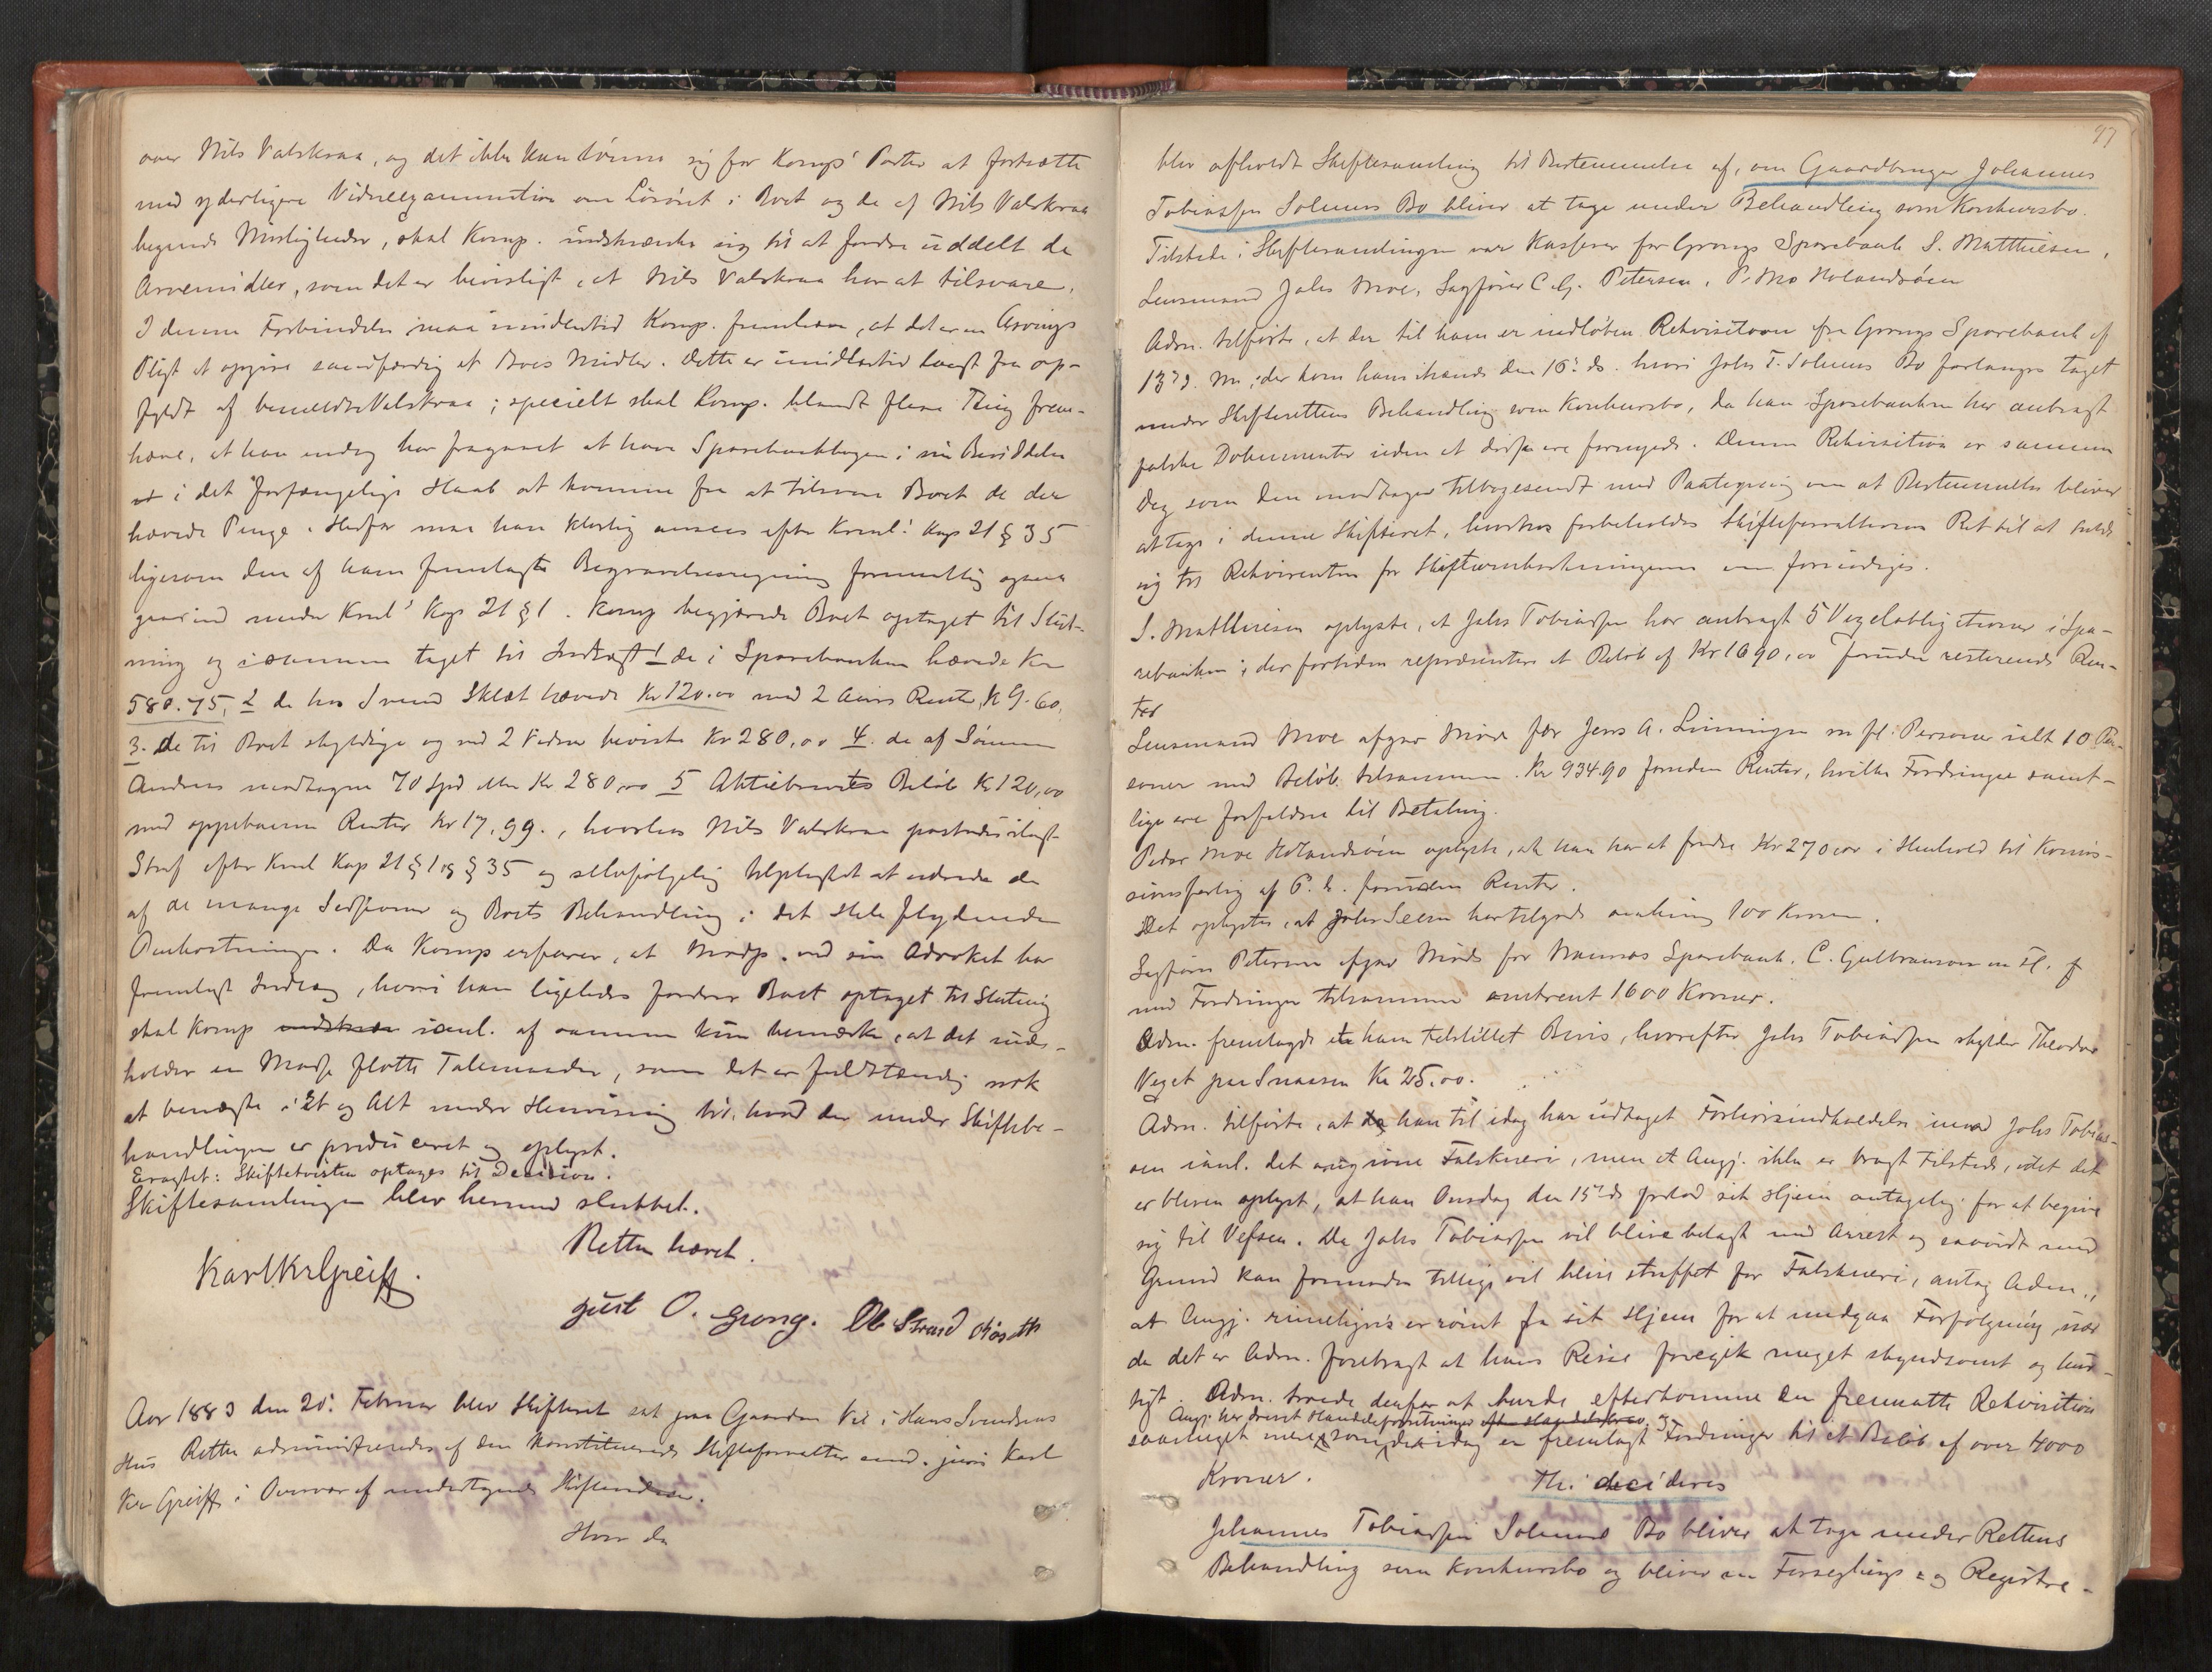 over Nils Valskraa, og det ikke kan lønne sig for Komps' Parter at fortsætte
med yderligere Vidneexamination om Løsøret i Boet og de af Nils Valskraa
begaaede Misligheder, skal Komp. indskrænke sig til at fordre uddelt de
Arvemidler, som det er bevisligt, at Nils Valskraa har at tilsvare.
I denne Forbindelse maa imidlertid Komp. fremhæve, at det er en Arvings
Pligt at opgive sandfærdig et Boes Midler. Dette er imidlertid langt fra op-
fyldt af bemeldte Valskraa; specielt skal Komp. blandt flere Ting frem-
hæve, at han endog har fragaaet at have Sparebankbogen i sin Besiddelse
i det forfængelige Haab at komme fra at tilsvare Boet de der
hævede Penge. Herfor maa han klarlig ansees efter Kriml. Kap 21 § 35
ligesom den af ham fremlagte Begravelsesregning formentlig ogsaa
gaar ind under Kriml. Kap 21 § 1. Komp begjærede Boet optaget til Slut-
ning og i samme taget til Indtægt 1 de i Sparebanken hævede Kr
580.75, 2 de hos Svend Sklæt hævede Kr 120.00 med 2 Aars Rente, K 9.60,
3. de til Boet skyldige og ved 2 Vidner beviste Kr 280,00 4. de af Sønnen
Andreas modtagne 70 Spd eller Kr 280,00 5 Aktiebrevets Beløb Kr 120,00
med oppebaarne Renter Kr 17,99., hvorhos Nils Valskraa paastaaes ilagt
Straf efter Kriml Kap 21 § 1 og § 35 og selvfølgelig tilpligtet at udrede de
af de mange Sessioner og Boets Behandling i det Hele flydende
Omkostninger. Da Komp erfarer, at Modp. ved sin Advokat har
fremlagt Indlæg, hvori han ligeledes fordrer Boet optaget til Slutning
skal Komp indskræn ianl. af samme kun bemærke, at det inde-
holder en Masse flotte Talemaader, som det er fuldstændig nok
at benægte i Et og Alt under Henvisning til, hvad der under Skiftebe-
handlingen er produceret og oplyst.
Eragtet: Skiftetvisten optages til Decision.
Skiftesamlingen blev hermed sluttet.
Retten hævet.
Karl Kr Greiff.
Just O. Grong. Ole Strand
Aar 1883 den 20. Februar blev Skifteret sat paa Gaarden Vie i Hans Svendsens
Hus Retten administreredes af den konstituerede Skifteforvalter cand. juris Karl
Kr Greiff i Overvær af undertegnede Skiftevidner.
Hvor da
97
blev afholdt Skiftesamling til Bestemmelse af, om Gaardbruger Johannes
Tobiassen Solums Bo bliver at tage under Behandling som Konkursbo.
Tilstede i Skiftesamlingen var Kasserer for Grongs Sparebank S. Matthiesen,
Lensmand Johs Moe, Sagfører C. G. Petersen, P. Mo Holandsøen
Adm. tilførte, at der til ham er indløben Rekvisition fra Grongs Sparebank af
13de d. M., der kom ham ihænde den 16de ds. hvori Johs T. Solums Bo forlanges taget
under Skifterettens Behandling som Konkursbo, da han Sparebanken har anbragt
falske Dokumenter uden at disse ere fornyede. Denne Rekvisition er samme
Dag som den modtoges tilbagesendt med Paategning om at Bestemmelse bliver
at tage i denne Skifteret, hvorhos forbeholdes Skifteforvalteren Ret til at holde
sig til Rekvirenten for Skifteomkostningerne om fornødiges.
S. Matthiesen oplyste, at Johs Tobiassen har anbragt 5 Vexelobligationer i Spa-
rebanken, der fortiden repræsentere et Beløb af Kr 1690,00 foruden resterende Ren-
ter
Lensmand Moe afgav Møde for Jens A. Linningen m fl. Personer ialt 10 Per-
soner med Beløb tilsammen Kr 934.90 foruden Renter, hvilke Fordringer samt-
lige ere forfaldne til Betaling.
Peder Moe Holandsøen oplyste, at han har at fordre Kr 270,00 i Henhold til Kommis-
sionsforlig af foruden Renter.
Det oplystes, at Johs Seem har tilgode omkring 100 Kroner.
Sagfører Petersen afgav Møde for Namsos Sparebank, C. Gulbransson m Fl.
med Fordringer tilsammen omtrent 1600 Kroner.
Adm. fremlagde et ham tilstillet Bevis, hvorefter Johs Tobiassen skylder Theodor
Veget paa Snaasen Kr 25,00.
Adm. tilførte, at han til idag har udtaget Forhørsindkaldelse imod Johs Tobias-
sen ianl. det angivne Falskneri, men at Angj. ikke er bragt tilstede, idet det
er bleven oplyst, at han Onsdag den 15de ds forlod sit Hjem antagelig for at begive
sig til Vefsen. Da Johs Tobiassen vil blive belagt med Arrest og saavidt med
Grund kan formodes tillige vil blive straffet for Falskneri, antog Adm.,
at Angj. rimeligvis er rømt fra sit Hjem for at undgaa Forfølgning, især
da det er Adm. forebragt at hans Reise foregik meget skyndsomt og hur-
tigt. Adm. troede derfor at burde efterkomme den fremsatte Rekvisition
Angj. har drevet Handelsforretninger efter Handelsbrev, og
saameget mere, som der idag er fremlagt Fordringer til et Beløb af over 4000
Kroner.
Thi decideres
Johannes Tobiassen Solums Bo bliver at tage under Rettens
Behandling som Konkursbo og bliver en Forseglings- og Registre-